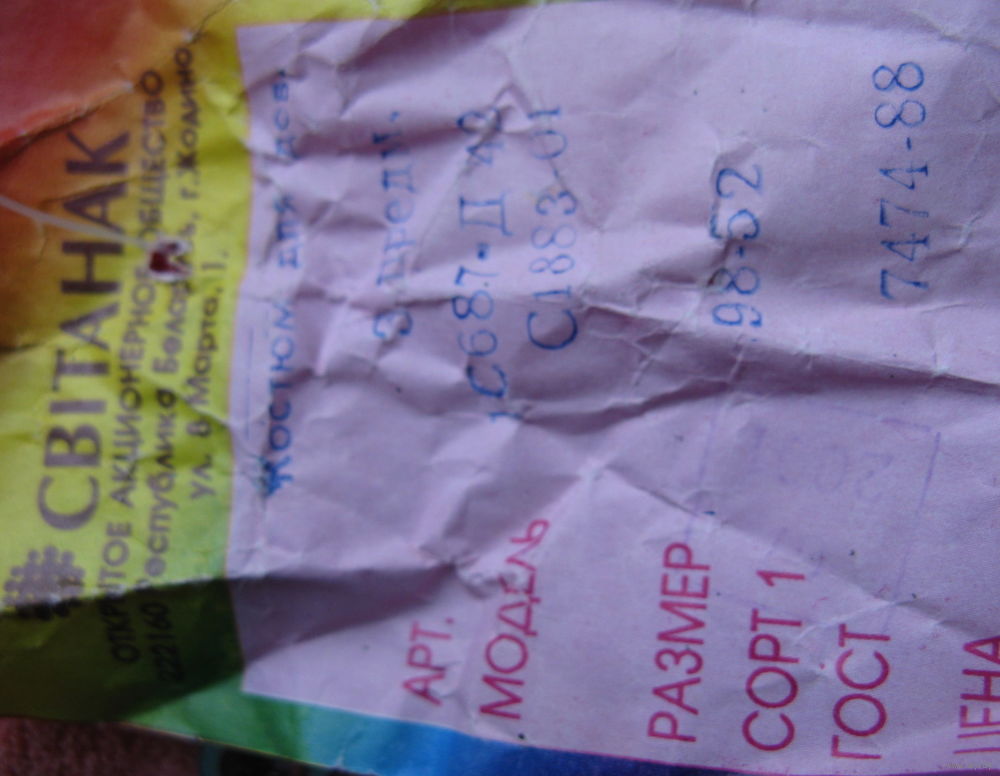 СВІТАНАК
ОТКРЫТОЕ АКЦИОНЕРНОЕ ОБЩЕСТВО
222160 Республика Беларусь, г. Жодино,
ул. 8 Марта, 1.
Костюм для дев.
3 предм.
АРТ. 1С687-Д 43
МОДЕЛЬ С1883-01
РАЗМЕР 98-52
СОРТ 1
ГОСТ 7474-88
ЦЕНА